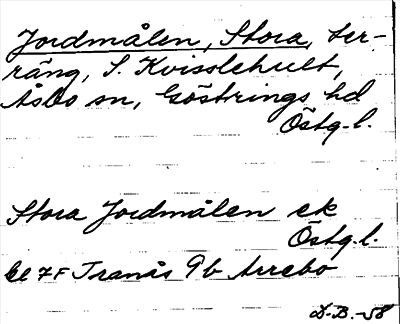 Jordmålen, Stora, ter-
räng, S. Kvisslehult,
Åsbo sn, Göstrings hd
Östg.l.
Stora Jordmålen ek
Östg.l.
bl 7F Tranås 9b Arrebo
D.B.-58